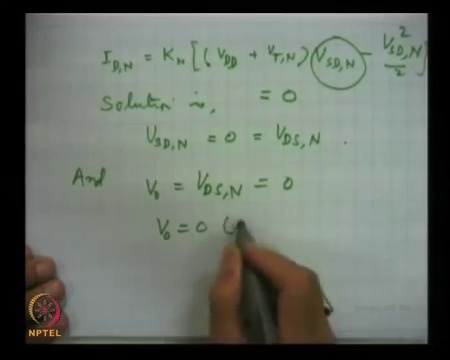 I_{D,N} = K_N [(V_{DD} + V_{T,N}) V_{SD,N} - V_{SD,N}^2/2]
Solution is, = 0
V_{SD,N} = 0 = V_{DS,N}.
And V_0 = V_{DS,N} = 0
V_0 = 0 (
NPTEL